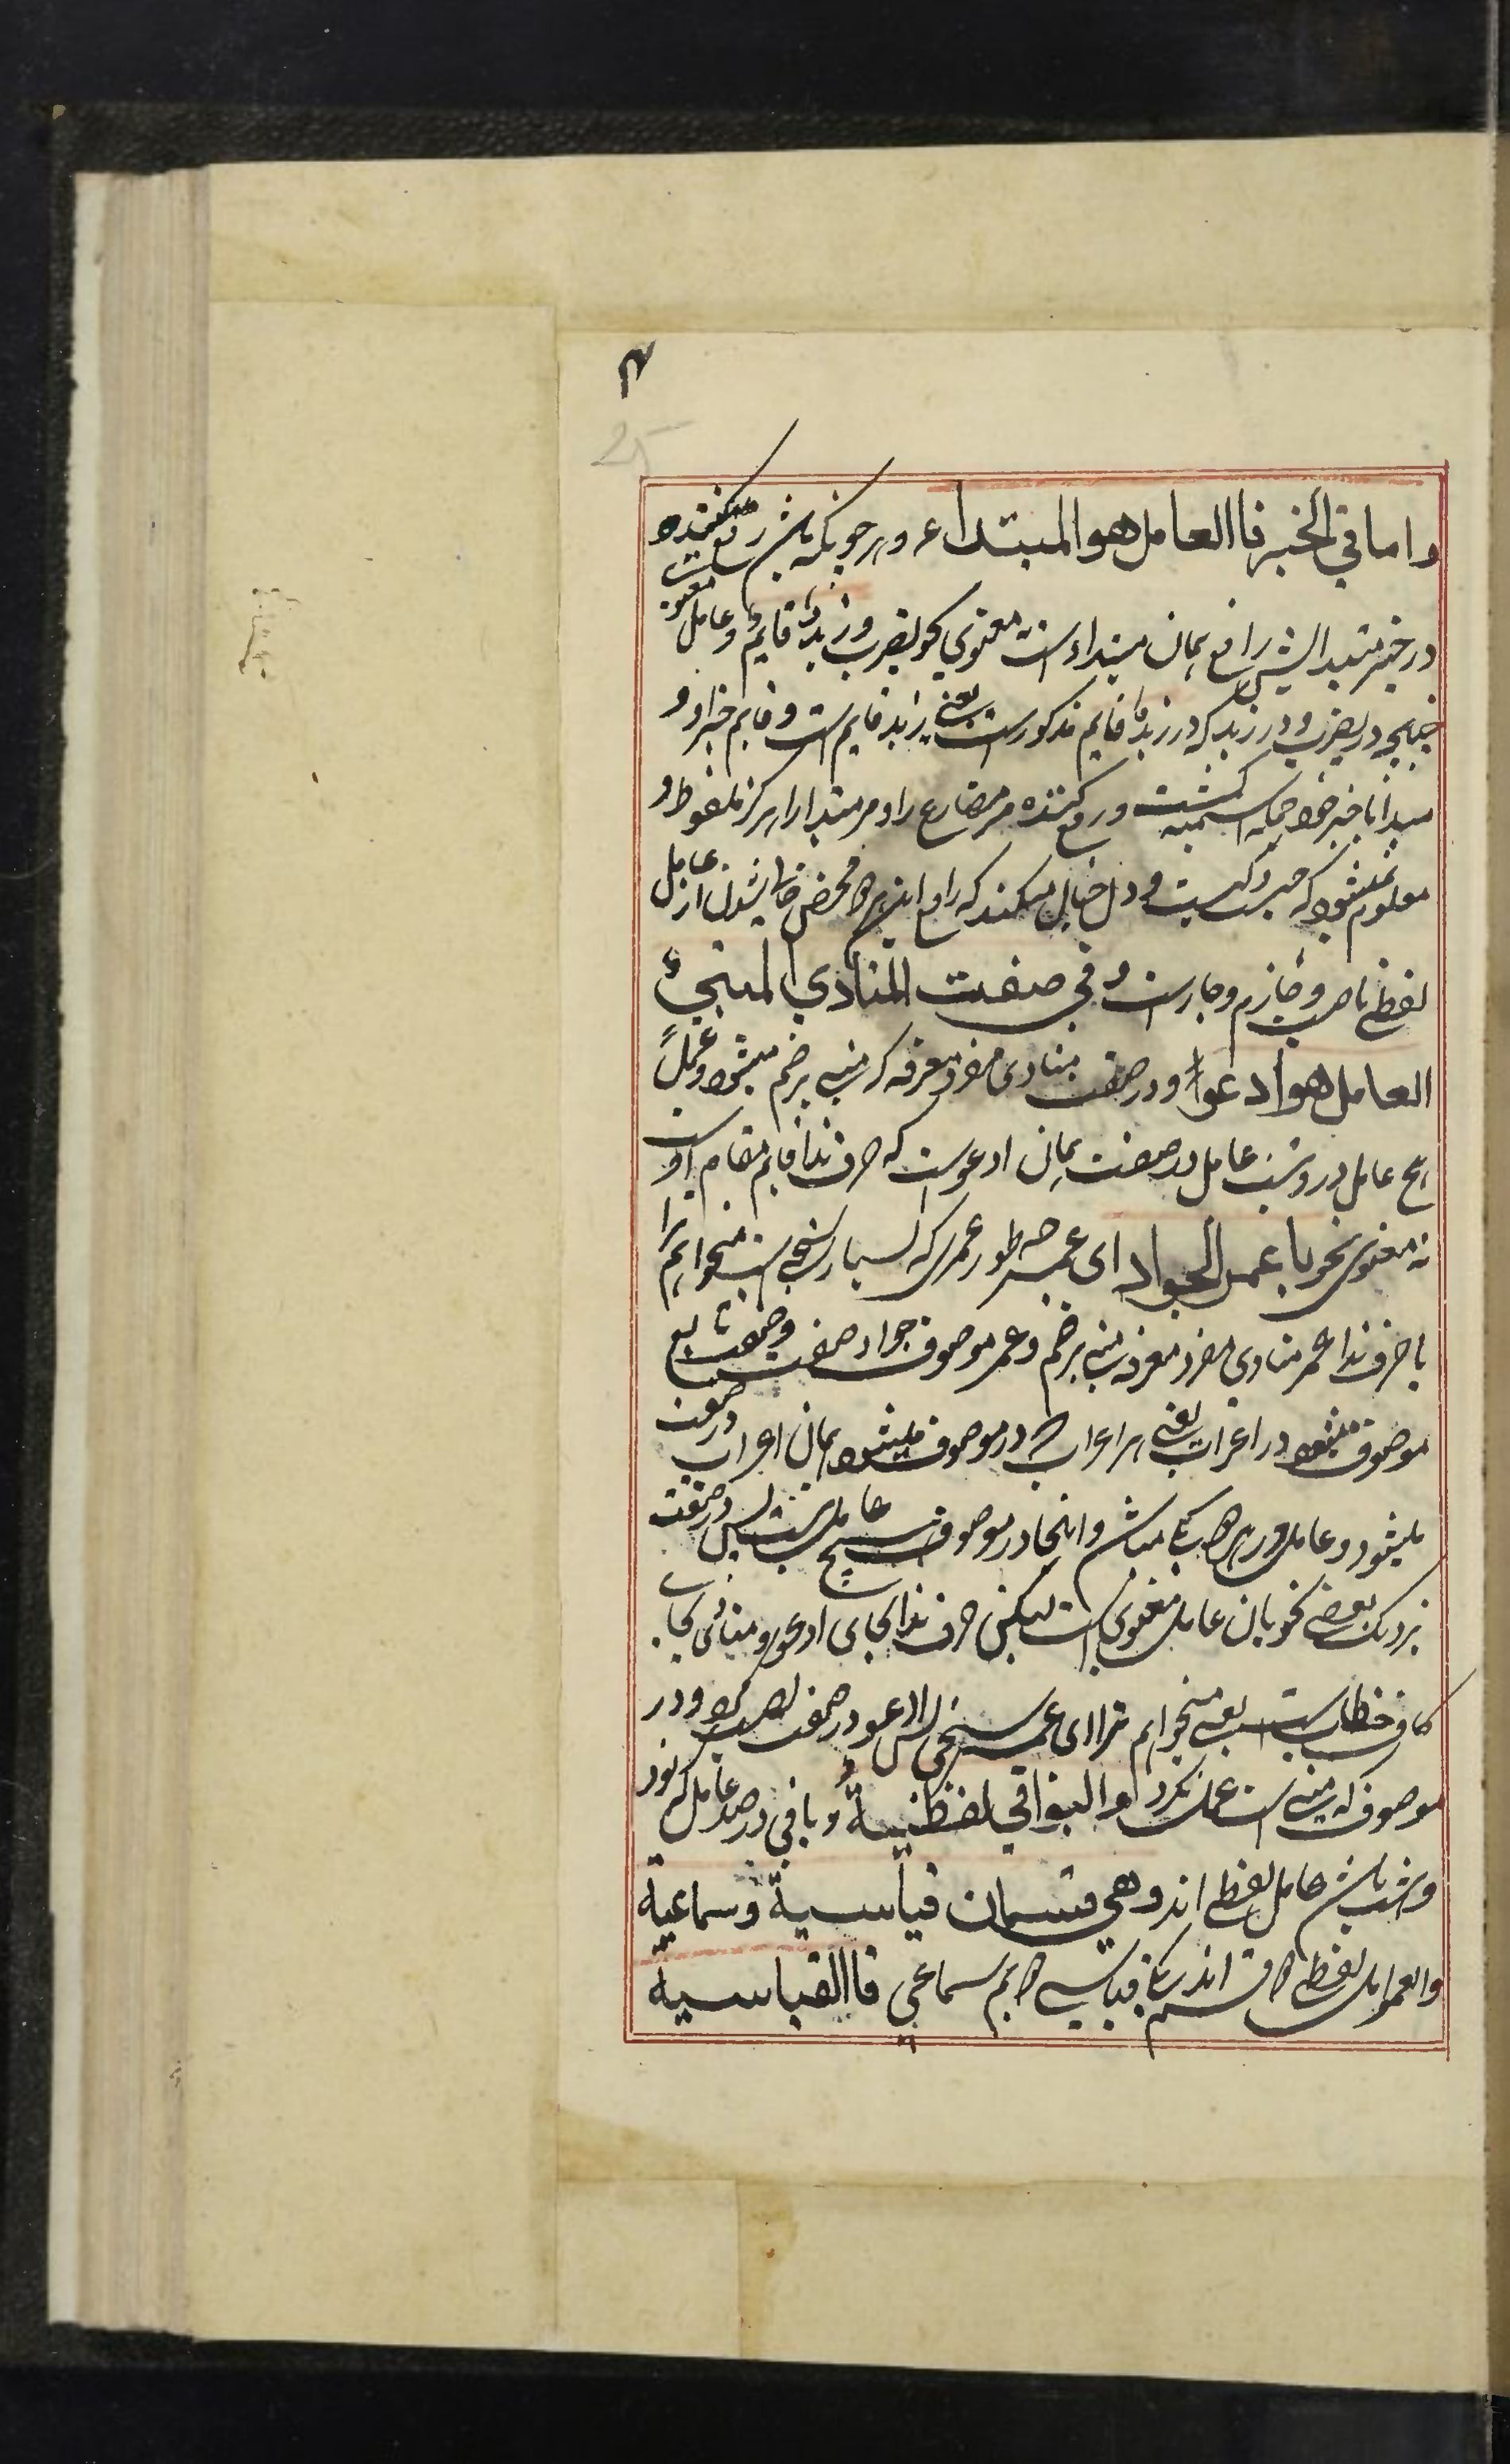 ۴
25
واما في الخبر فاالعامل هو المبتداء و هر چونکه باشد رفع کننده
در خبر مبتدا لیش رافع همان مبتداء است معنوي نحو یضرب و زیدٌ قایمٌ و عامل معنوی
چنانچه در یضرب و در زید که در زیدٌ قایم مذکور است یعنی زید قایم است و قایم خبر او و
مبدا با خبر خود جمله اسمیه گشت و رفع کننده مر مضارع را و مر مبتدا را هرگز ملفوظ و
معلوم نمیشود که چیست و کیست و دل خیال میکند که رافع این هر دو محض خالی شدن از عامل
لفظی ناصب و جازم و جار است و في صفت المنادي المبني
العامل هو ادعوا و در صفت منادی مفرد معرفه که مبنی بر ضم میشود و عمل
هیچ عامل در و نیست عامل در صفت همان ادعو است که حرف ندا قایم مقام اوست
نه معنوی نحو یا عمر الجواد ای عمر چه طور عمری که بسیار سخی است میخوانم ترا
یا حرف ندا عمر منادی مفرد معرفه مبنی بر ضم و عمر موصوف جواد صفت و صفت تابع
موصوف میشود در اعراب یعنی هر اعراب که در موصوف میشود همان اعراب در صفت
میشود و عامل در هر دو یکی میباشد و اینجا در موصوف هیچ عامل نیست پس در صفت
نزدیک بعضی نحویان عامل معنوی است لیکن حرف ندا بجای ادعو و منادی بجای
کاف خطاب است یعنی میخوانم ترا ای عمر سخی پس ادعو در صفت نصب کرد و در
موصوف که مبنی است عمل نکرد و البواقي لفظیةٌ و باقی در صد عامل که نود
و شش باشد عامل لفظی اند وهي قسمان قیاسیة وسماعیة
والعوامل لفظی دو قسم اند یکی قیاسی دویم سماعي فاالقیاسیة